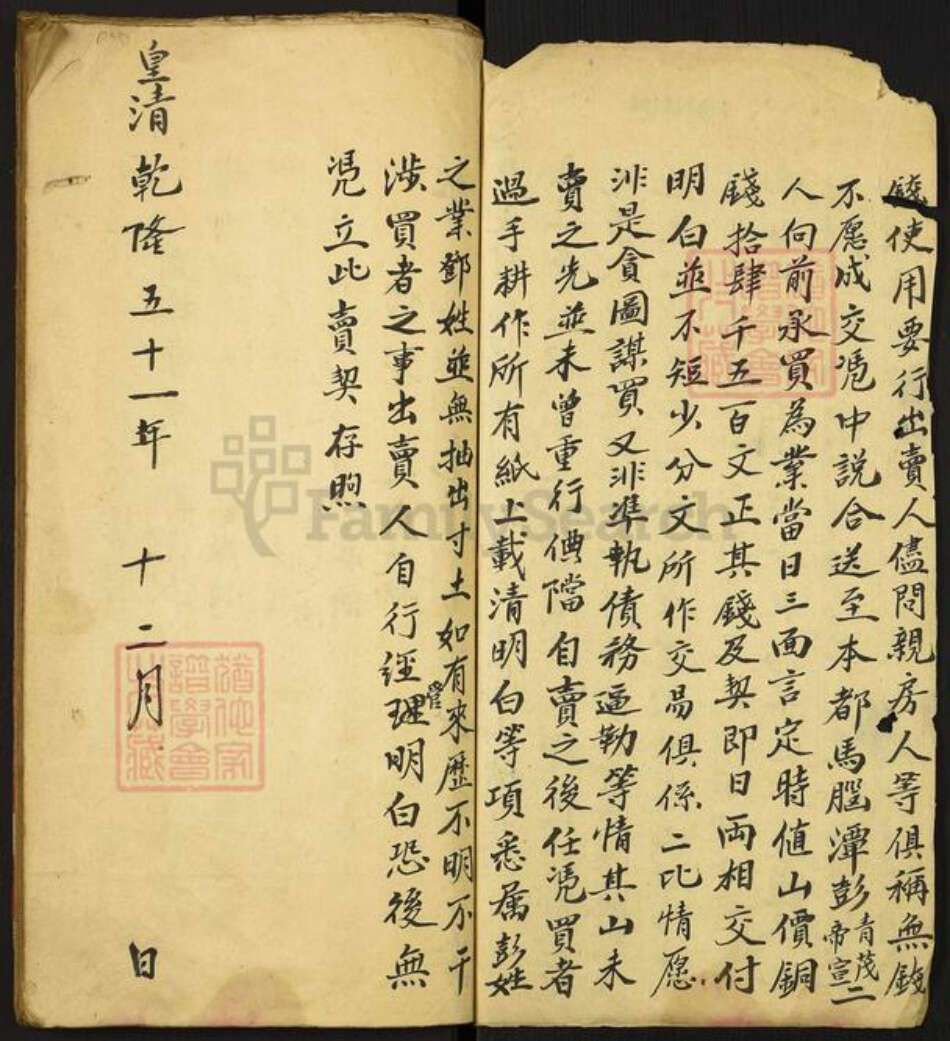 錢使用要行出賣人儘問親房人等俱稱無錢
不愿成交凴中説合送至本都馬腦潭彭青茂帝宣二
人向前承買為業當日三面言定時値山價銅
錢拾肆千五百文正其錢及契即日両相交付
明白並不短少分文所作交易俱係二比情愿
非是貪圖謀買又非準執債務逼勒等情其山未
賣之先並未曾重行典當自賣之後任凴買者
過手耕作所有紙上載清明白等項悉属彭姓
之業鄧姓並無抽出寸土如有來歷不明不干
渉買者之事出賣人自行經管理明白恐後無
凴立此賣契存照
皇清乾隆五十一年 十二月 日
FamilySearch